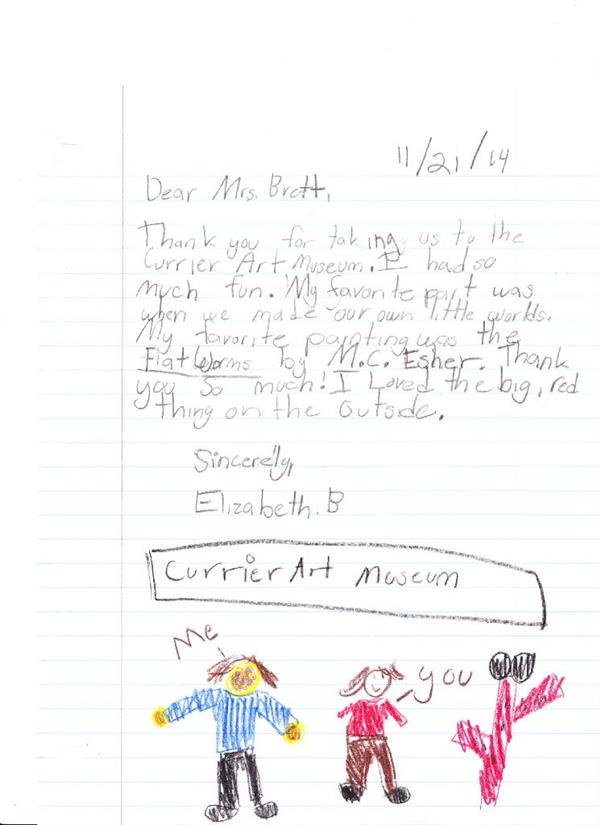 11/21/14
Dear Mrs. Brett,
Thank you for taking us to the
Currier Art Museum. I had so
much fun. My favorite part was
when we made our own little worlds.
My favorite painting was the
Flat Worms by M.C. Esher. Thank
you so much! I Loved the big, red
thing on the outside.
Sincerely,
Elizabeth. B
Currier Art Museum
Me
you